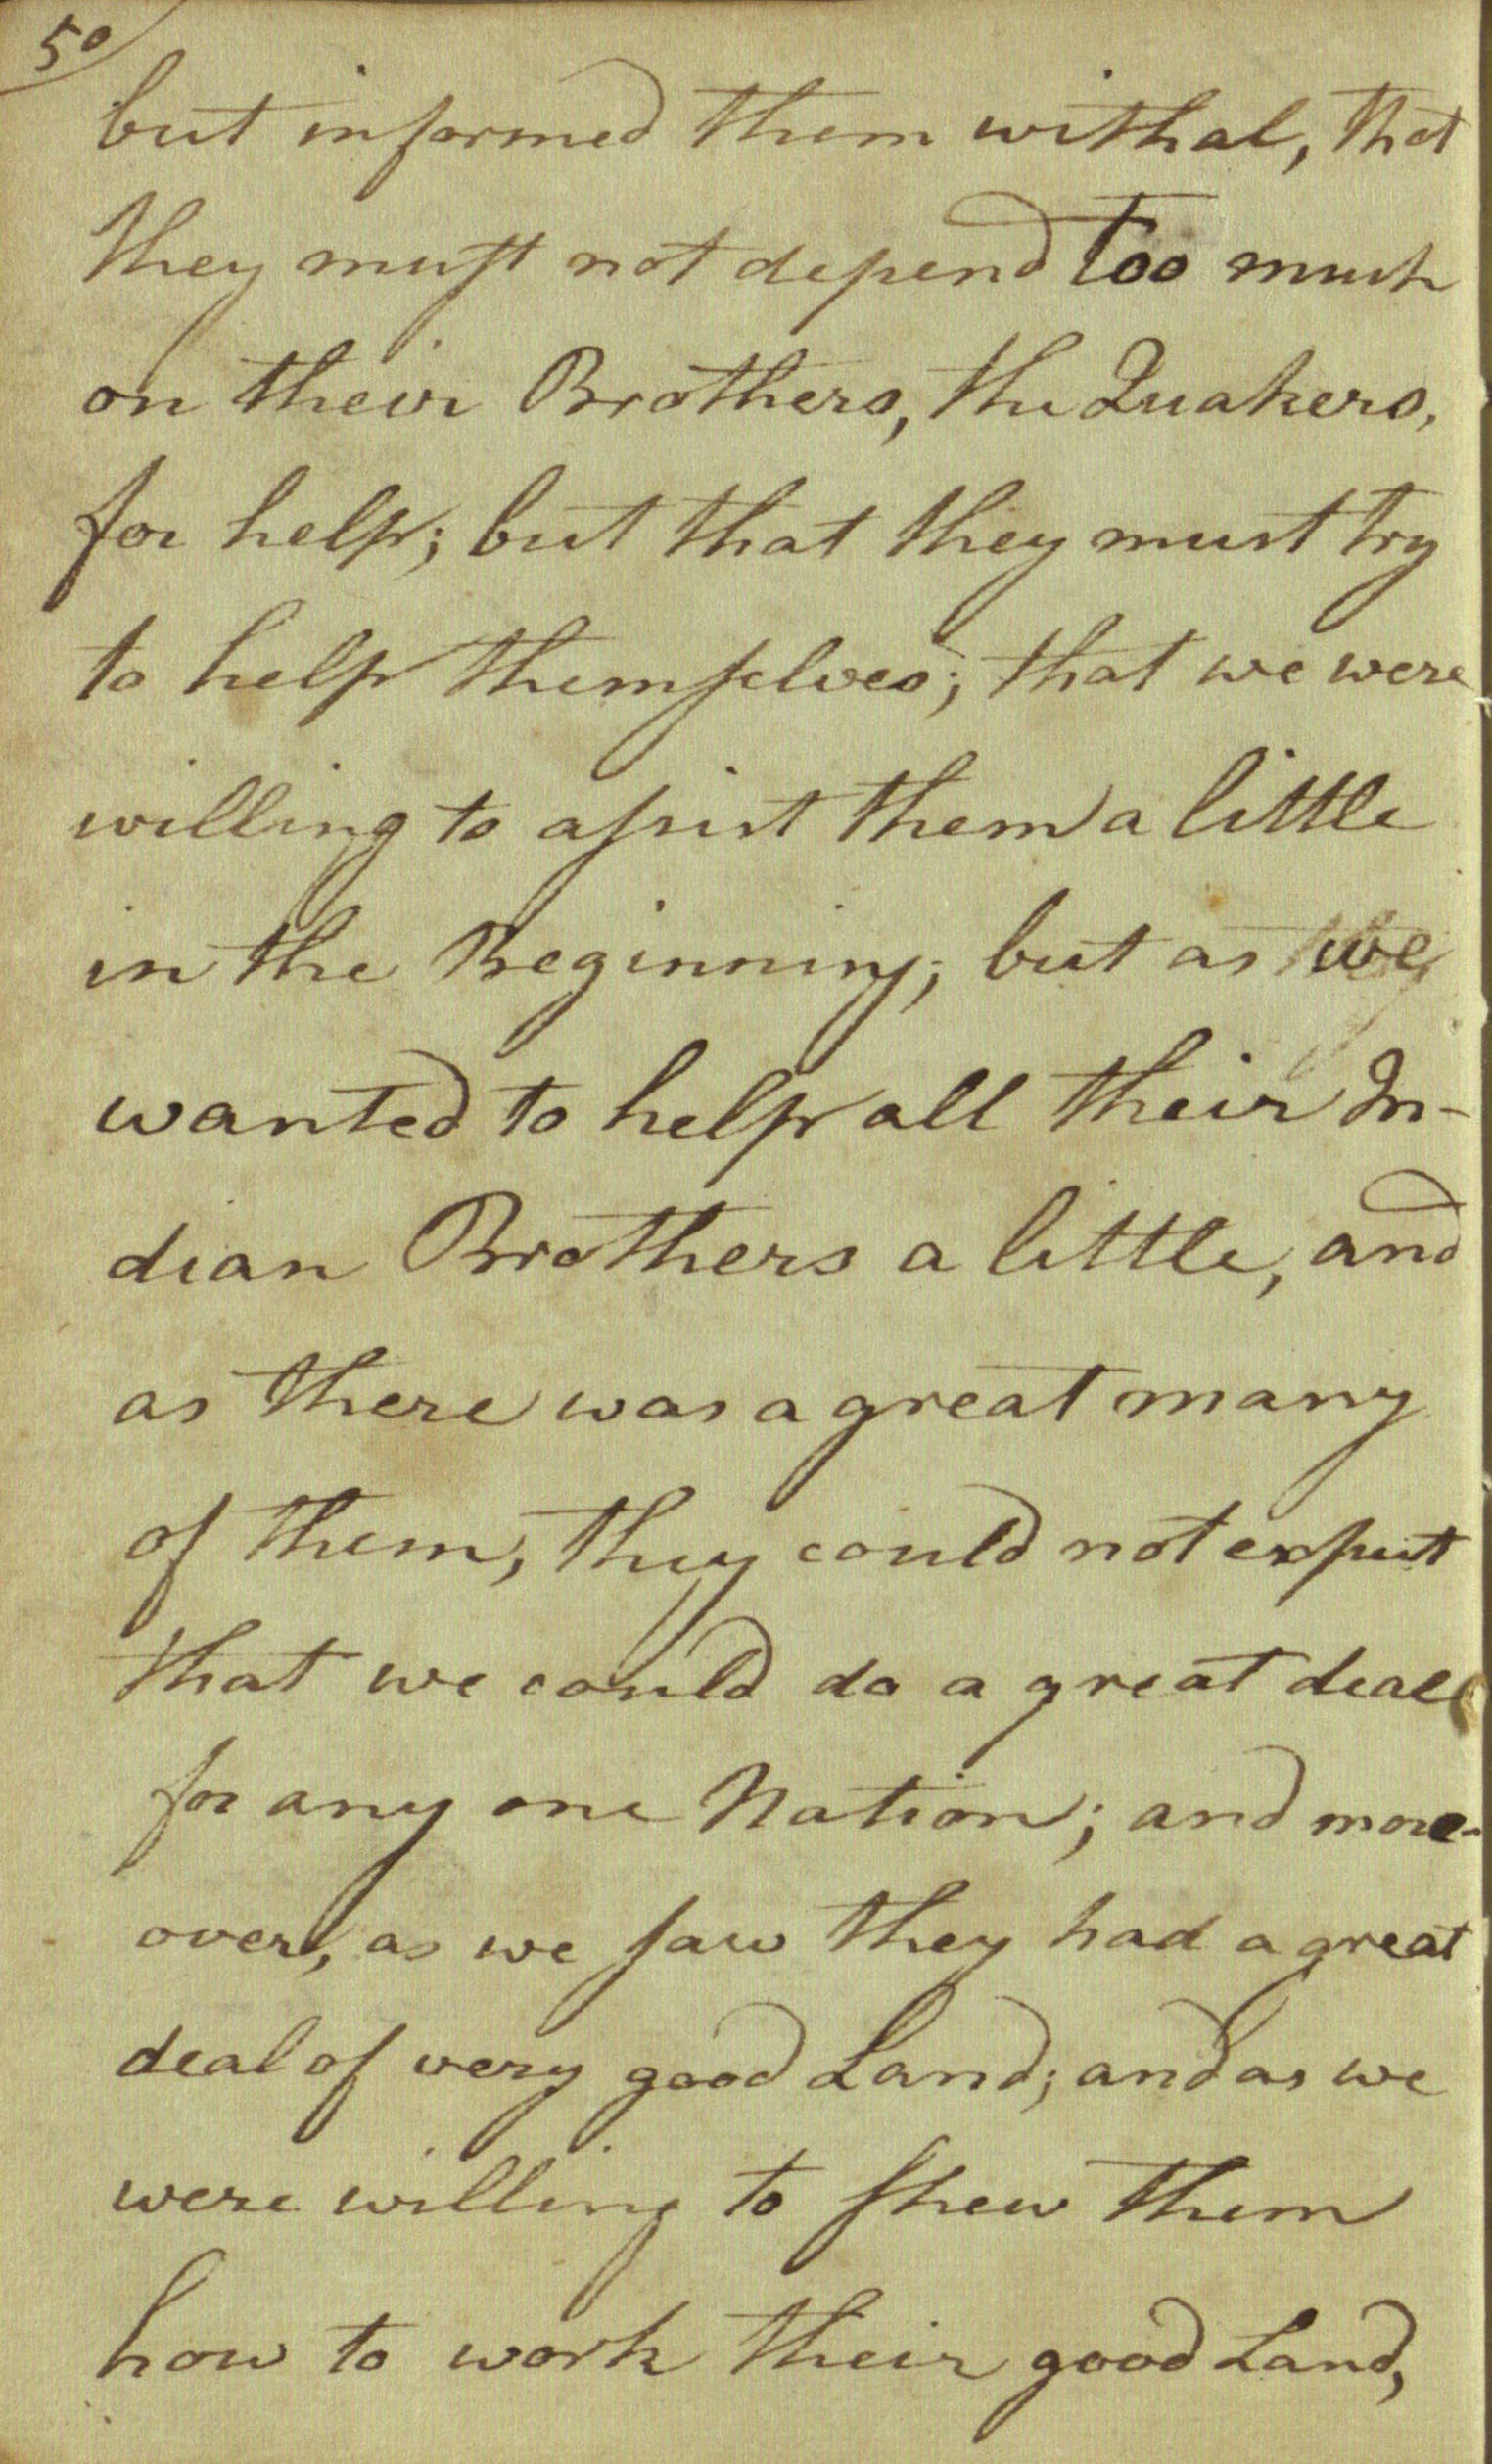 50
but informed them withal, that
they must not depend too much
on their Brothers, the Quakers,
for help; but that they must try
to help themselves; that we were
willing to assist them a little
in the Beginning; but as we
wanted to help all their In-
dian Brothers a little, and
as there was a great many
of them, they could not expect
that we could do a great deal
for any one Nation; and more-
over, as we saw they had a great
deal of very good Land; and as we
were willing to shew them
how to work their good Land,